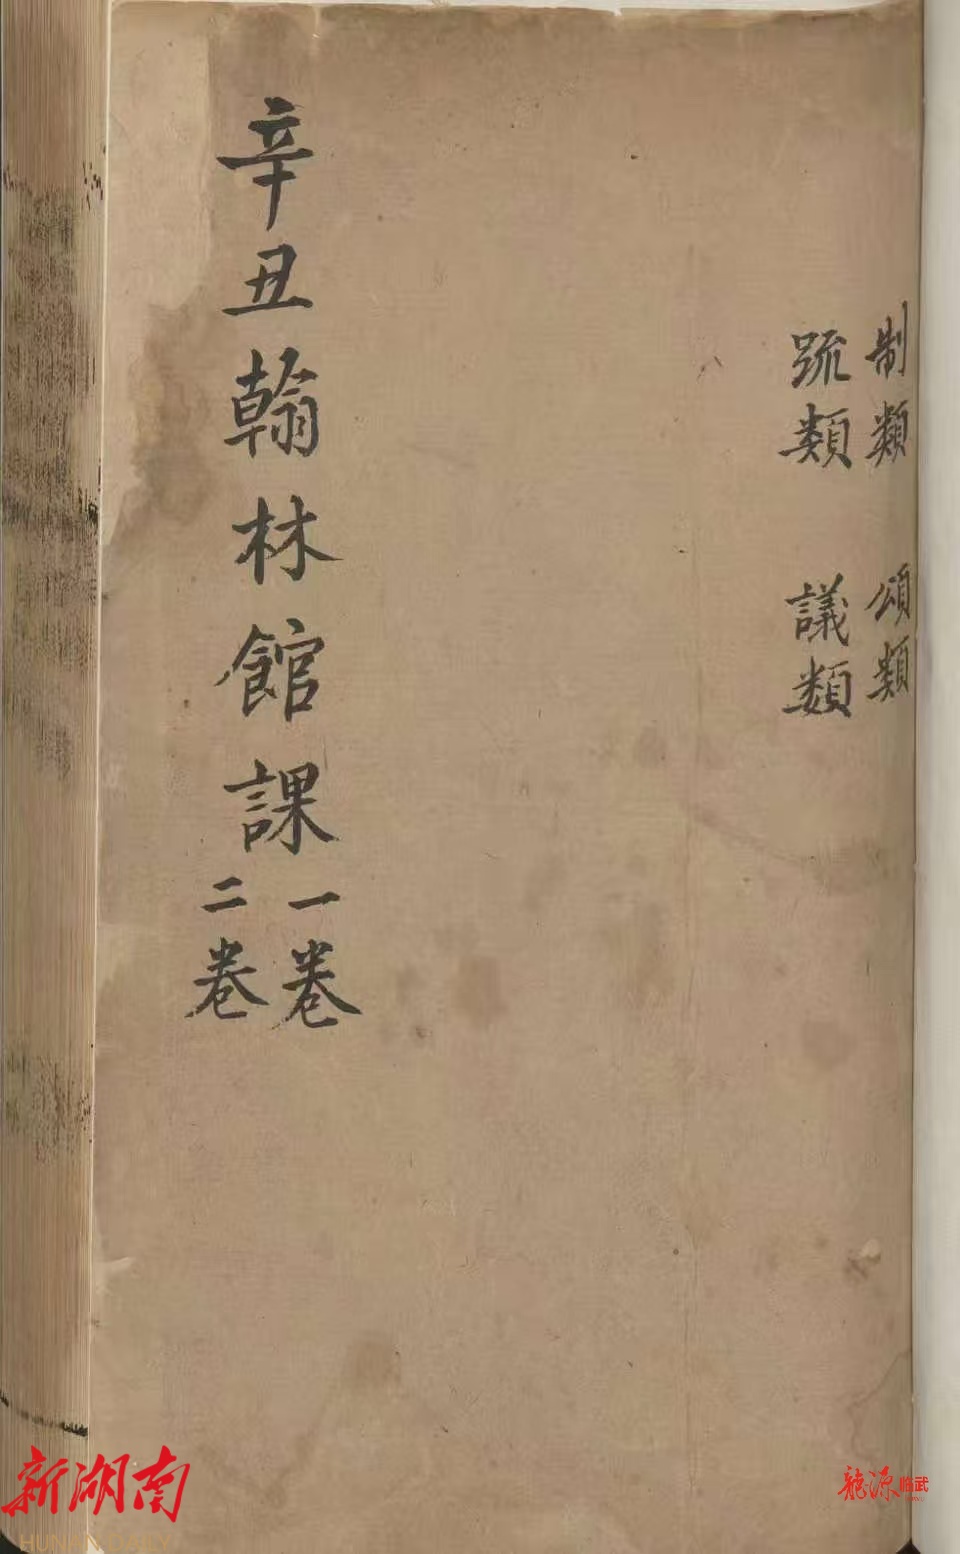 制類 頌類
䟽類 議類
辛丑翰林館課
一卷
二卷
新湖南
HUNAN DAILY
龍源临武